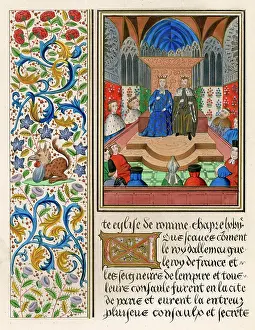 te eglise de romme Chap.e lx
Que jaques coment
le roy dallemaigne
le roy de france et
les seigneurs de lempire et tous
leurs consaulx furent en la cite
de paris et eurent la entreux
pluseurs consaulx et secretz